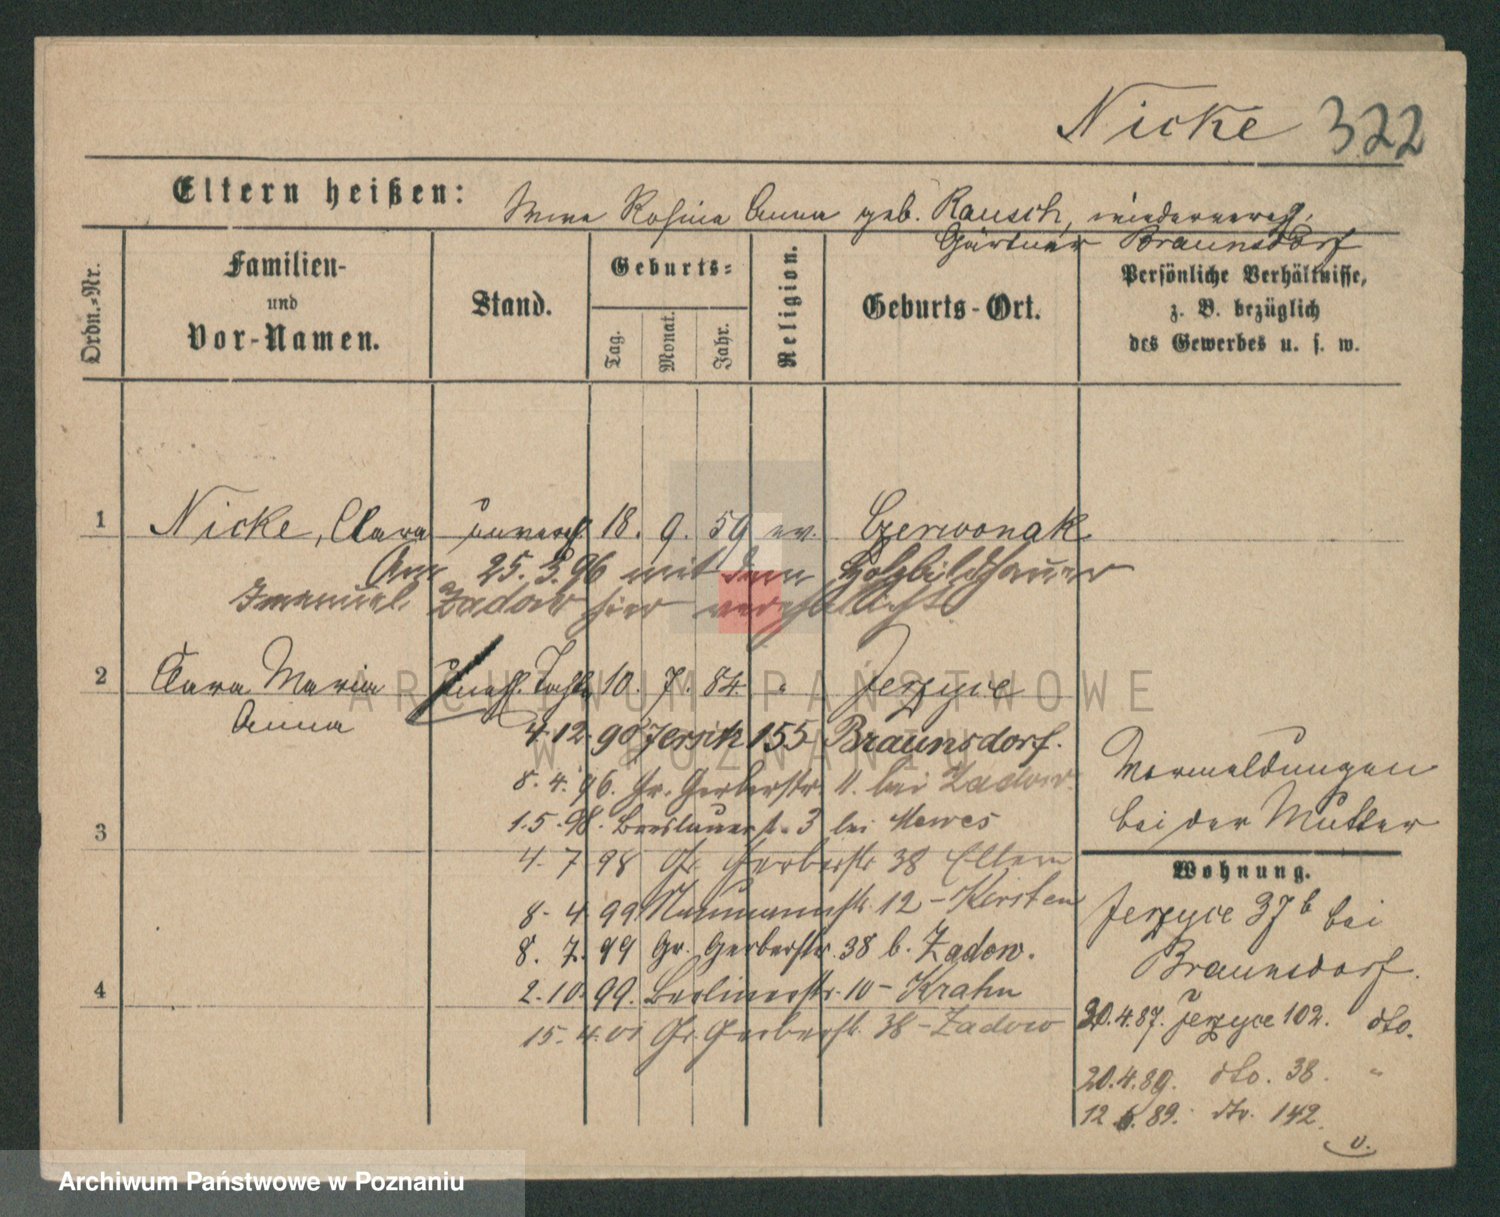 Nicke 322
Eltern heißen: Rosine Anna geb. Rausch,
Gärtner Braunsdorf
Ordn.-Nr.
Familien-
und
Vor-Namen.
Stand.
Geburts-
Tag.
Monat.
Jahr.
Religion.
Geburts-Ort.
Persönliche Verhältnisse,
z. B. bezüglich
des Gewerbes u. s. w.
1 Nicke, Clara unverh. 18. 9. 59 ev. Czerwonak
Am 25. 3. 96 mit dem Holzbildhauer
Emanuel Zadow hier verehelicht
2 Clara Maria unehl. Tocht. 10. 7. 84 " Jerzyce
Anna
4.12.90 Jersitz 155 Braunsdorf.
8.4.96. Gr. Gerberstr. 11. bei Zadow.
1.5.98. Breslauerst. 3 bei Mewes
3
4.7 98 Gr. Gerberstr 38 Eltern
8.4 99 Naumannstr. 12 - Kirsten
8.7.99 Gr. Gerberstr. 38 b. Zadow.
4
2.10.99. Berlinerstr. 10 - Krahn
15.4.01 Gr. Gerberstr. 38 - Zadow
Vormeldungen
bei der Mutter
Wohnung.
Jerzyce 37b bei
Braunsdorf.
20.4.87. Jerzyce 102. dto.
20.4.89. dto. 38. "
12 6. 89. dto. 142.
v.
ARCHIWUM PAŃSTWOWE
W POZNANIU
Archiwum Państwowe w Poznaniu